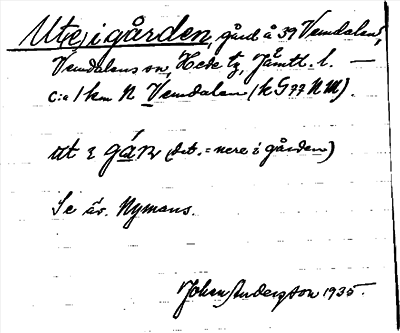 Ute i gården, gård å 39 Vemdalen,
Vemdalens sn, Hede tg, Jämtl. l. —
c:a 1 km N Vemdalen (k G77 NM).
ut i gán (det. = nere i gården)
Se äv. Nymans.
Johan Anderzson 1935.